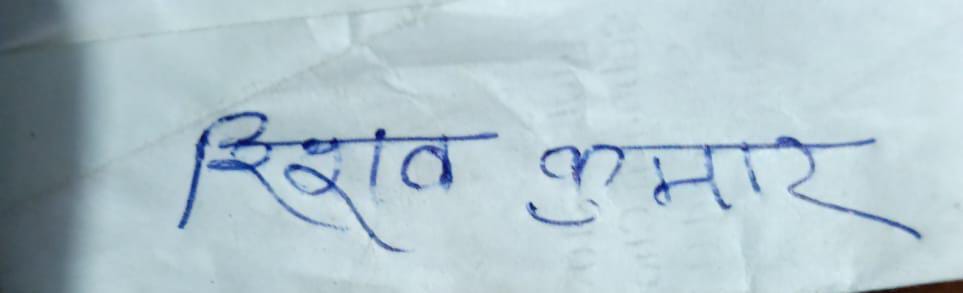 रिशव कुमार